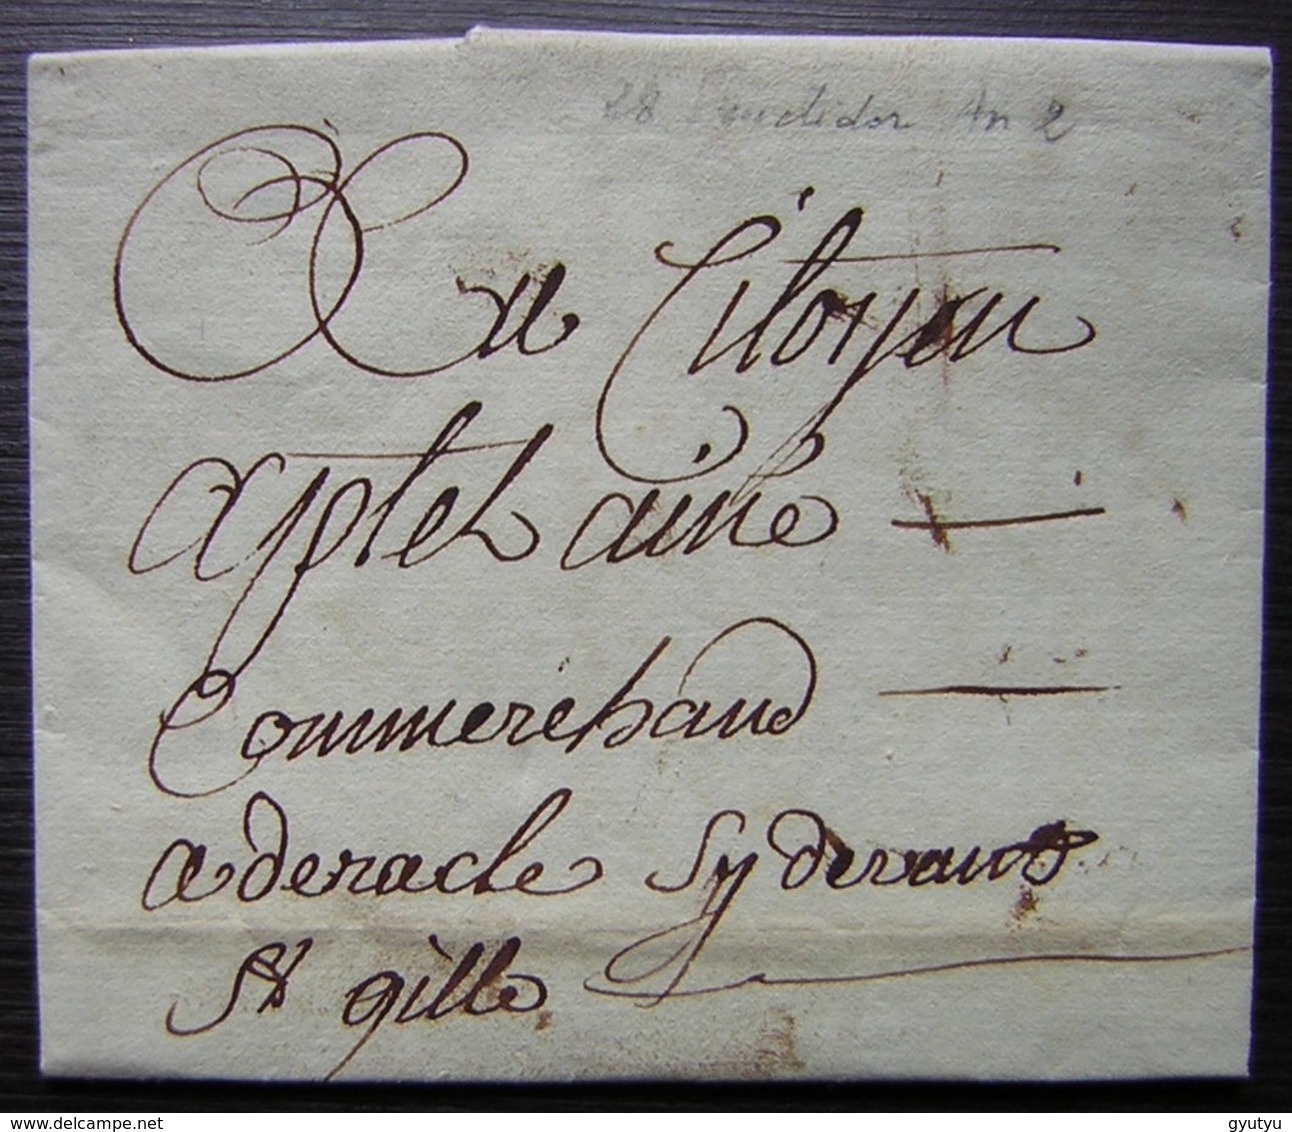 28 An 2
Au Citoyen
aystel ainé
Commerehand
a deracle sy devant
St gille
www.delcampe.net
gyutyu